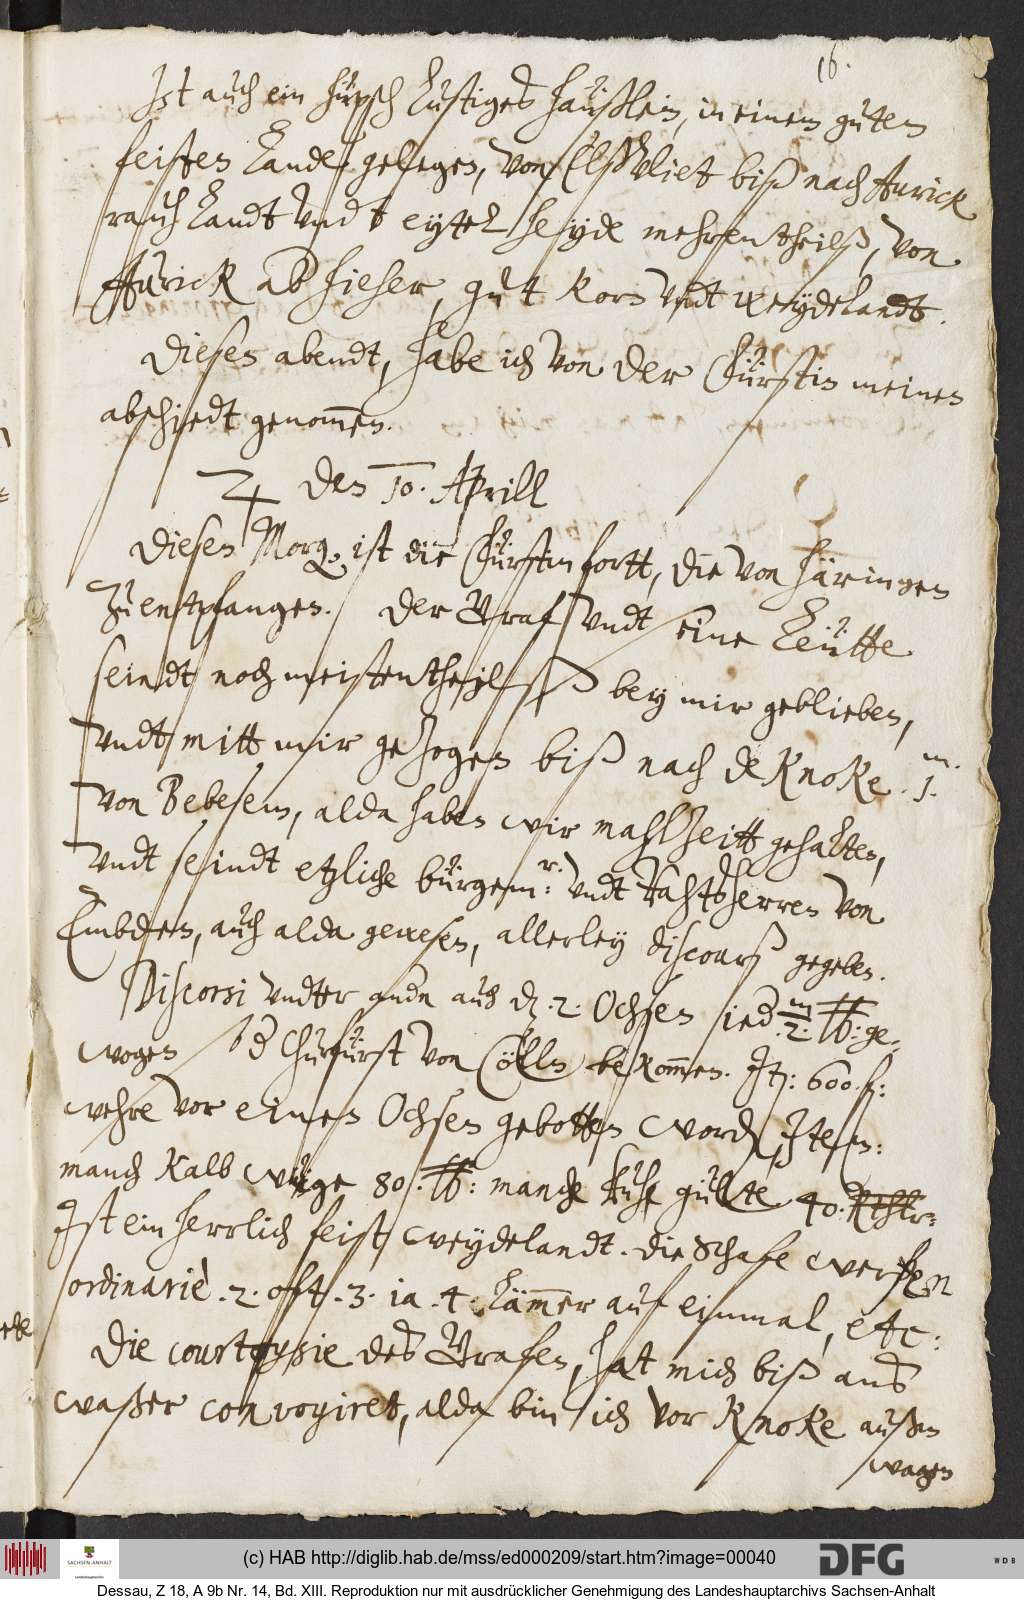 16.
Ist auch ein hüpsch lustiges häußlein, in einem guten
feisten Lande gelegen, von Elß Vliet biß nach Aurick
rauh Landt vndt eytel heyde mehrentheilß, von
Aurick ab hieher, gut korn vndt weydelandt.
Diesen abendt, habe ich von der Fürstin meinen
abschiedt genom̄en.
♃ den 10. Aprill
Diesen Morg. ist die Fürstin fortt, die von Häringen
zu entpfangen. Der Graf vndt seine Leütte
seindt noch meistentheilß bey mir geblieben,
vndt mitt mir gezogen biß nach de Knoke. 1. m.
von Bebesem, alda haben wir mahlzeitt gehalten,
vndt seindt etzliche bürgem:r vndt Rahtsherren von
Embden, auch alda gewesen, allerley discourß gegeben.
Discorsi vndter andn auch dz .2. Ochsen jed m/2. ℔: ge¬
wogen so d Churfürst von Cölln bekom̄en. It: 600 f:
wehre vor einen Ochsen gebotten word, Item:
manch Kalb wüge 80. ℔: manche kuhe gülte 40. Rthlr:
Ist ein herrlich feist weydelandt. die Schafe werfen
ordinarië .2. oft .3. ia .4. Läm̄er auf einmal, etc:
Die courtoysie des Grafen, hat mich biß ans
waßer convoyiret, alda bin ich vor Knoke außm
wagen
(c) HAB http://diglib.hab.de/mss/ed000209/start.htm?image=00040
SACHSEN-ANHALT
DFG
WDB
Dessau, Z 18, A 9b Nr. 14, Bd. XIII. Reproduktion nur mit ausdrücklicher Genehmigung des Landeshauptarchivs Sachsen-Anhalt